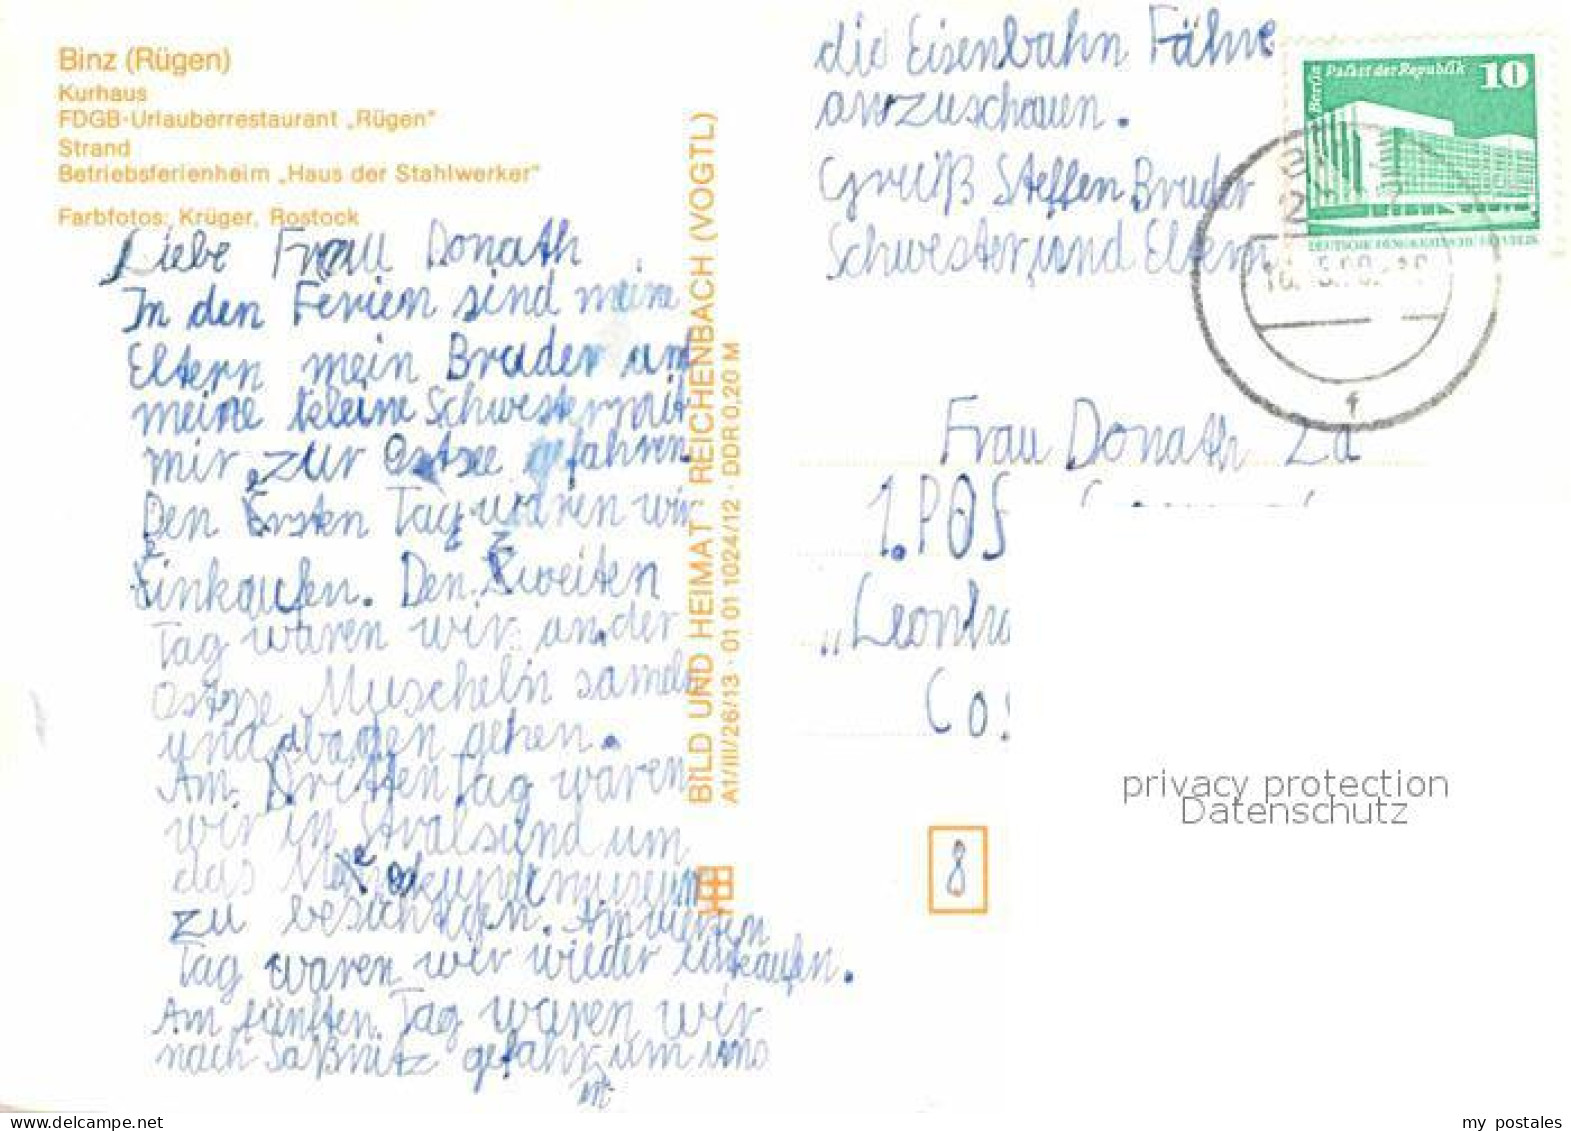 Binz (Rügen)
Kurhaus
FDGB-Urlauberrestaurant „Rügen"
Strand
Betriebsferienheim „Haus der Stahlwerker"
Farbfotos: Krüger, Rostock
Liebe Frau Donath
In den Ferien sind meine
Eltern mein Bruder und
meine kleine Schwester mit
mir zur Ostsee gefahren.
Den Ersten Tag waren wir
Einkaufen. Den Zweiten
Tag waren wir an der
Ostsee Muscheln sameln
und baden gehen.
Am Dritten Tag waren
wir in Stralsund um
das Mereskundemuseum
zu besichtigen. Am vierten
Tag waren wir wieder einkaufen.
Am fünften Tag waren wir
nach Saßnitz gefahr um uns
en
die Eisenbahn Fähre
anzuschauen.
Gruß Steffen Bruder
Schwester und Eltern
BILD UND HEIMAT REICHENBACH (VOGTL)
A1/III/26/13 · 01 01 1024/12 · DDR 0,20 M
Berlin Palast der Republik 10
DEUTSCHE DEMOKRATISCHE REPUBLIK
f
Frau Donath 2a
1. POS
„Leonha
Cos
8
privacy protection
Datenschutz
my postales